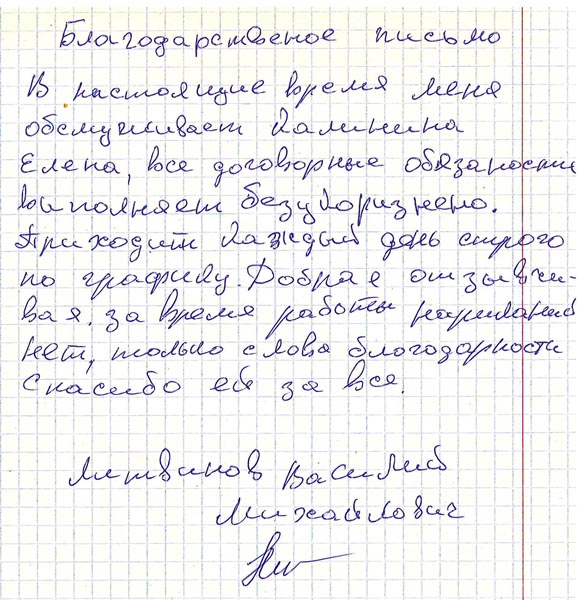 Благодарственое письмо
В настоящие время меня
обслуживает Калинина
Елена, все договорные обязаности
выполняет безукоризнено.
Приходит каждый день строго
по графику. Добрая отзывчи-
вая. за время работы нариканий
нет, только слова благодарности
Спасибо ей за все.
Литвинов Василий
Михайлович